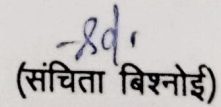 -sd.
(संचिता बिश्नोई)